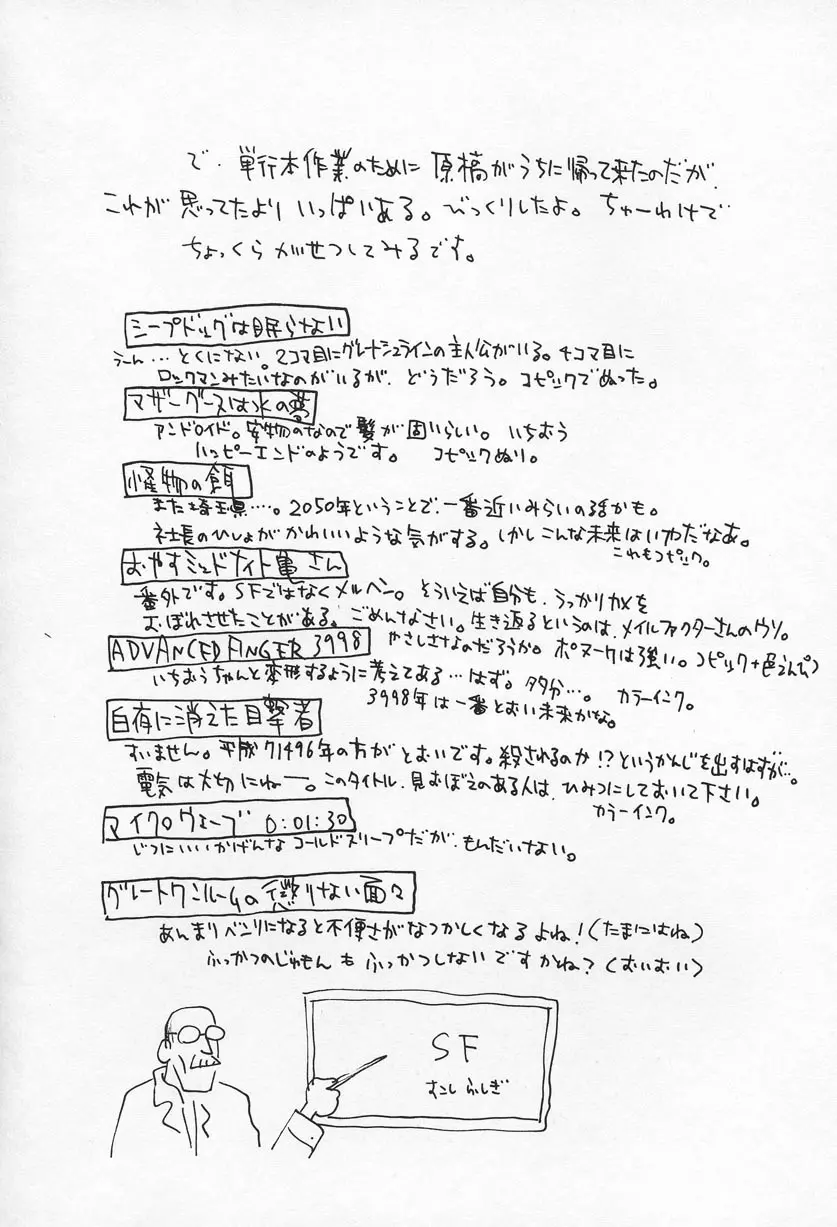 で、単行本作業のために原稿がうちに帰って来たのだが、
これが思ってたよりいっぱいある。びっくりしたよ。ちゅーわけで
ちょっくらかいせつしてみるです。
シープドッグは眠らない
うーん…とくにない。2コマ目にグレートシュラインの主人公がいる。4コマ目に
ロックマンみたいなのがいるが、どうだろう。コピックでぬった。
マザーグースは氷の夢
アンドロイド。安物のなので髪が固いらしい。いちおう
ハッピーエンドのようです。 コピックぬり。
怪物の餌
また埼玉県…。2050年ということで、一番近いみらいの話かも。
社長のひしょがかわいいような気がする。しかしこんな未来はいやだなあ。
これもコピック。
おやすミッドナイト亀さん
番外です。SFではなくメルヘン。そういえば自分も、うっかりカメを
おぼれさせたことがある。ごめんなさい。生き返るというのは、メイルファクターさんのウソ。
やさしさなのだろうか。ポヌークは強い。コピック+色えんぴつ
ADVANCED FINGER 3998
いちおうちゃんと変形するように考えてある…はず。多分…。 カラーインク。
3998年は一番とおい未来かな。
白夜に消えた目撃者
すいません。平成71496年の方がとおいです。殺されるのか!?というかんじを出すはずが…。
電気は大切にねー。このタイトル、見おぼえのある人は、ひみつにしておいて下さい。
カラーインク。
マイクロウェーブ 0:01:30
じつにいいかげんなコールドスリープだが、もんだいない。
グレートワンルームの懲りない面々
あんまりベンリになると不便さがなつかしくなるよね!(たまにはね)
ふっかつのじゅもんもふっかつしないですかね?(おいおい)
SF
すこしふしぎ